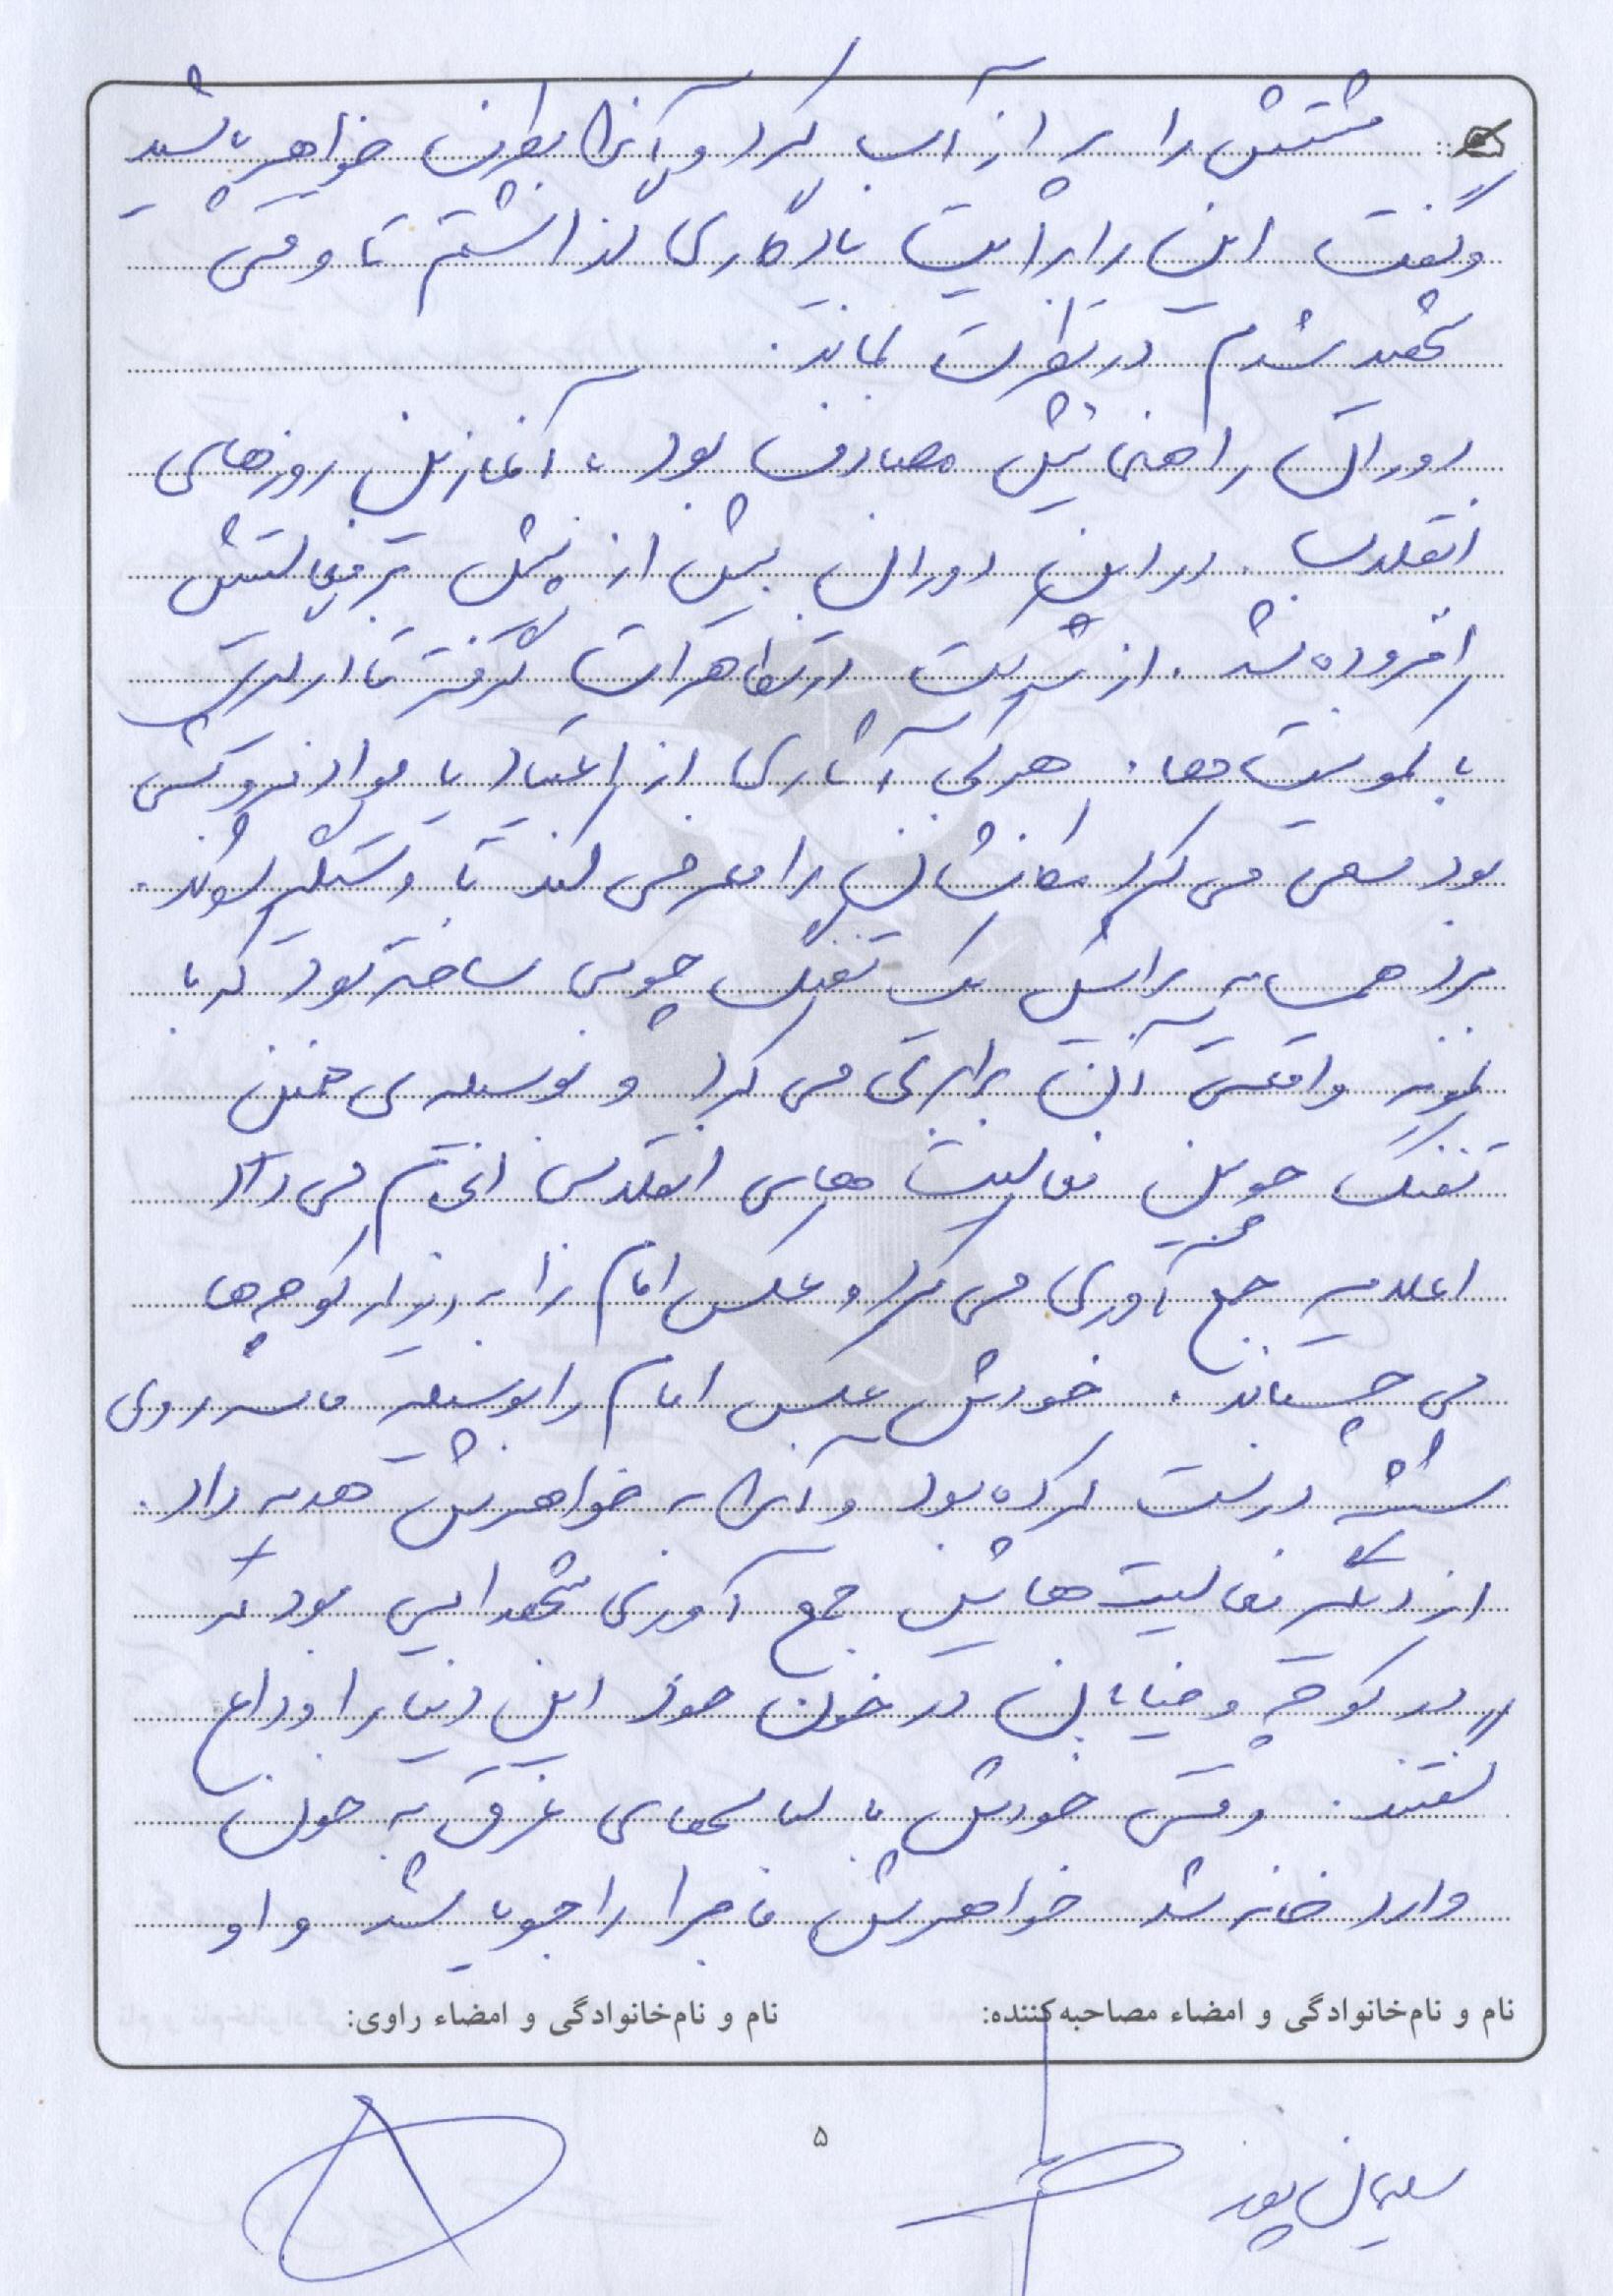 مشتش را پر از آب کرد و آنرا بطرف خواهر پاشید
و گفت این را برایت یادگاری گذاشتم تا وقتی
شهید شدم در نظرت بماند.
دوران راهنمائیش مصادف بود با آغازین روزهای
انقلاب. در این دوران بیش از پیش بر فعالیتش
افزوده شد. از شرکت در تظاهرات گرفته تا درگیری
با کمونیست‌ها. هر کی آثاری از اعتیاد یا مواد فروشی
بود سعی می کرد مکانشان را معرفی کند تا دستگیر شوند.
مرد همسایه برایش یک تفنگ چوبی ساخته بود که با
نمونه واقعی آن برابری می کرد و بوسیله‌ی همین
تفنگ چوبین فعالیت های انقلابی انجام می داد
اعلامیه جمع آوری می کرد و عکس امام را به دیوار کوچه‌ها
می چسباند. خودش عکس امام را بوسیله ماسه روی
شیشه درست کرده بود و آنرا به خواهرش هدیه داد.
از دیگر فعالیت‌هایش جمع آوری شهدایی بود که
در کوچه و خیابان در خون خود این دنیا را وداع
گفتند. وقتی خودش با لباسهای غرق به خون
وارد خانه شد خواهرش ماجرا را جویا شد و او
نام و نام‌خانوادگی و امضاء مصاحبه‌کننده: نام و نام‌خانوادگی و امضاء راوی:
۵
سلیمان پور